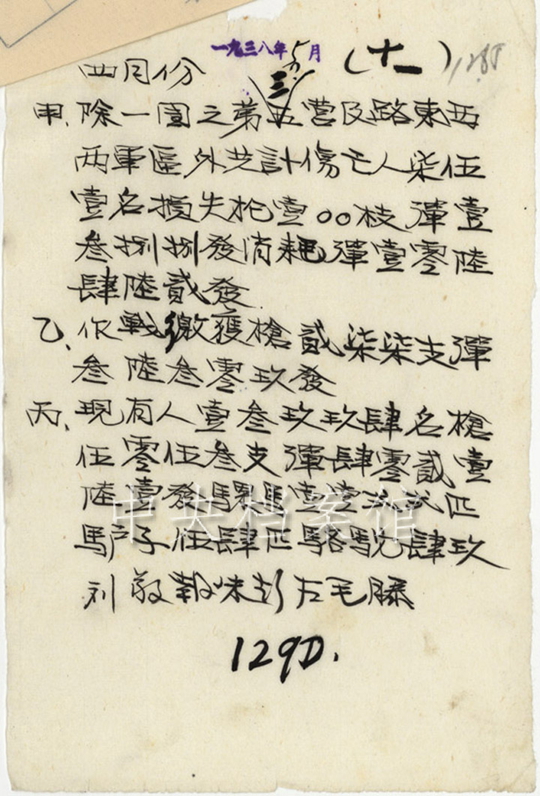 一九三八年5月
(十一) 1285
四月份 三
甲、除一團之第五营及路東西
两軍區外共計傷亡人柒伍
壹名損失枪壹00枝彈壹
叁捌捌發消耗彈壹零陸
肆陸貳發
乙、作戰繳獲槍貳柒柒支彈
叁陸叁零玖發
丙、現有人壹叁玖玖肆名槍
伍零伍叁支彈肆零貳壹
陸壹發騾馬壹壹 匹
馿子伍肆匹駱駝肆玖
刘 敬 彭左毛滕
129D.
中央档案馆